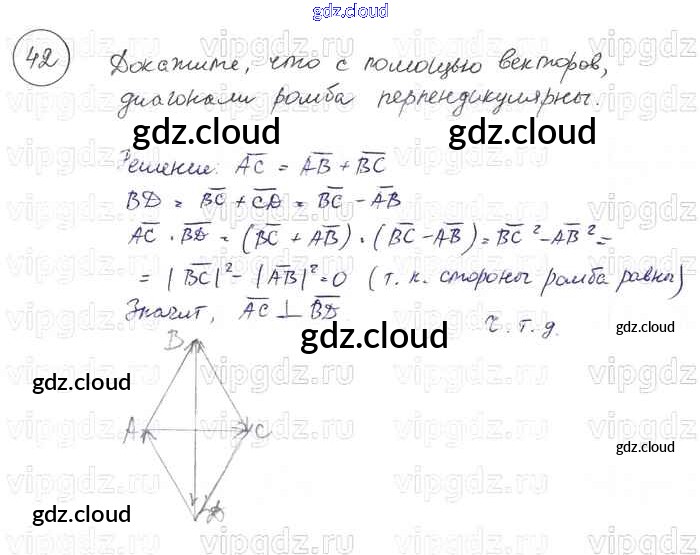 gdz.cloud
42 Докажите, что с помощью векторов,
диагонали ромба перпендикулярны.
gdz.cloud gdz.cloud
Решение: A̅C̅ = A̅B̅ + B̅C̅
BD = B̅C̅ + C̅D̅ = B̅C̅ - A̅B̅
A̅C̅ · B̅D̅ = (B̅C̅ + A̅B̅) · (B̅C̅ - A̅B̅) = B̅C̅² - A̅B̅² =
= |B̅C̅|² - |A̅B̅|² = 0 (т. к. стороны ромба равны)
Значит, A̅C̅ ⊥ B̅D̅
ч. т. д.
gdz.cloud gdz.cloud
B
gdz.cloud
A C
gdz.cloud
D
gdz.cloud gdz.cloud
vipgdz.ru